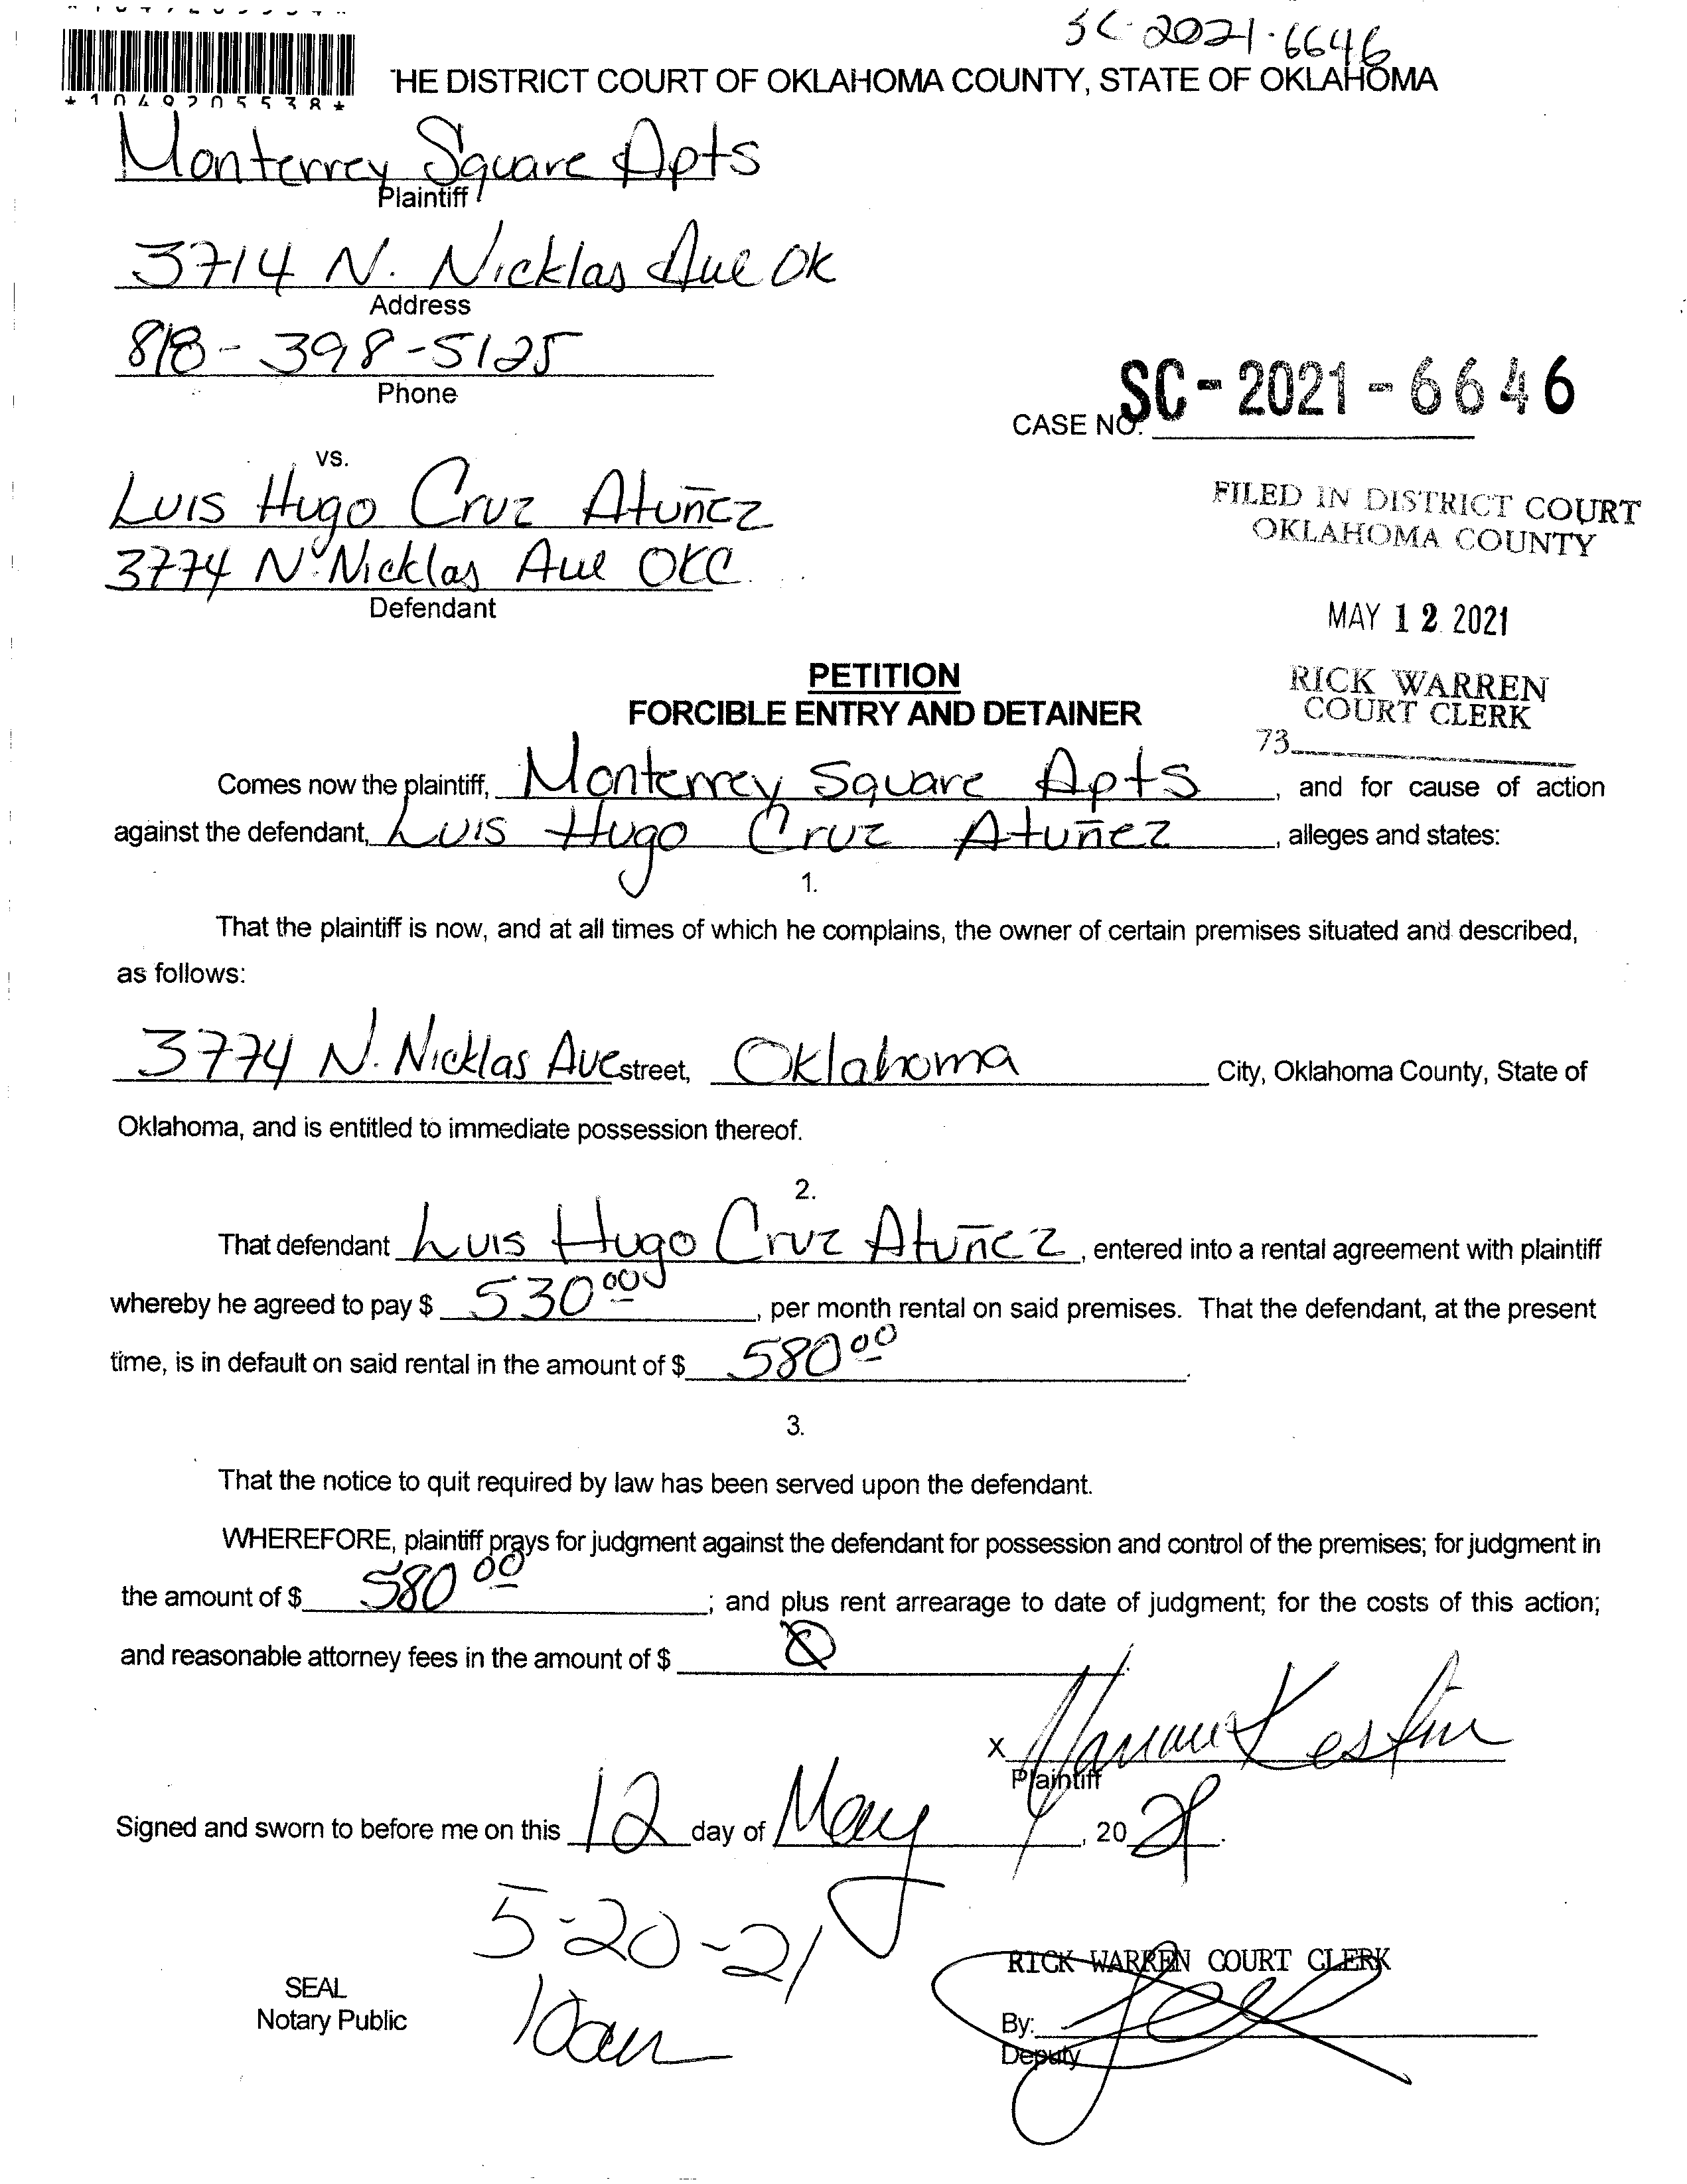 SC-2021-6646
*1049205538*
HE DISTRICT COURT OF OKLAHOMA COUNTY, STATE OF OKLAHOMA
Monterrey Square Apts
Plaintiff
3714 N. Nicklas Ave OK
Address
818-398-5125
Phone
CASE NO. SC-2021-6646
vs.
Luis Hugo Cruz Atuñez
3774 N. Nicklas Ave OKC
Defendant
FILED IN DISTRICT COURT
OKLAHOMA COUNTY
MAY 12 2021
RICK WARREN
COURT CLERK
73
PETITION
FORCIBLE ENTRY AND DETAINER
Comes now the plaintiff, Monterrey Square Apts, and for cause of action
against the defendant, Luis Hugo Cruz Atuñez, alleges and states:
1.
That the plaintiff is now, and at all times of which he complains, the owner of certain premises situated and described,
as follows:
3774 N. Nicklas Ave street, Oklahoma City, Oklahoma County, State of
Oklahoma, and is entitled to immediate possession thereof.
2.
That defendant Luis Hugo Cruz Atuñez, entered into a rental agreement with plaintiff
whereby he agreed to pay $ 530 00, per month rental on said premises. That the defendant, at the present
time, is in default on said rental in the amount of $ 580 00.
3.
That the notice to quit required by law has been served upon the defendant.
WHEREFORE, plaintiff prays for judgment against the defendant for possession and control of the premises; for judgment in
the amount of $ 580 00; and plus rent arrearage to date of judgment; for the costs of this action;
and reasonable attorney fees in the amount of $
X
Plaintiff
Signed and sworn to before me on this 12 day of May, 2021.
5-20-21
10am
SEAL
Notary Public
RICK WARREN COURT CLERK
By:
Deputy